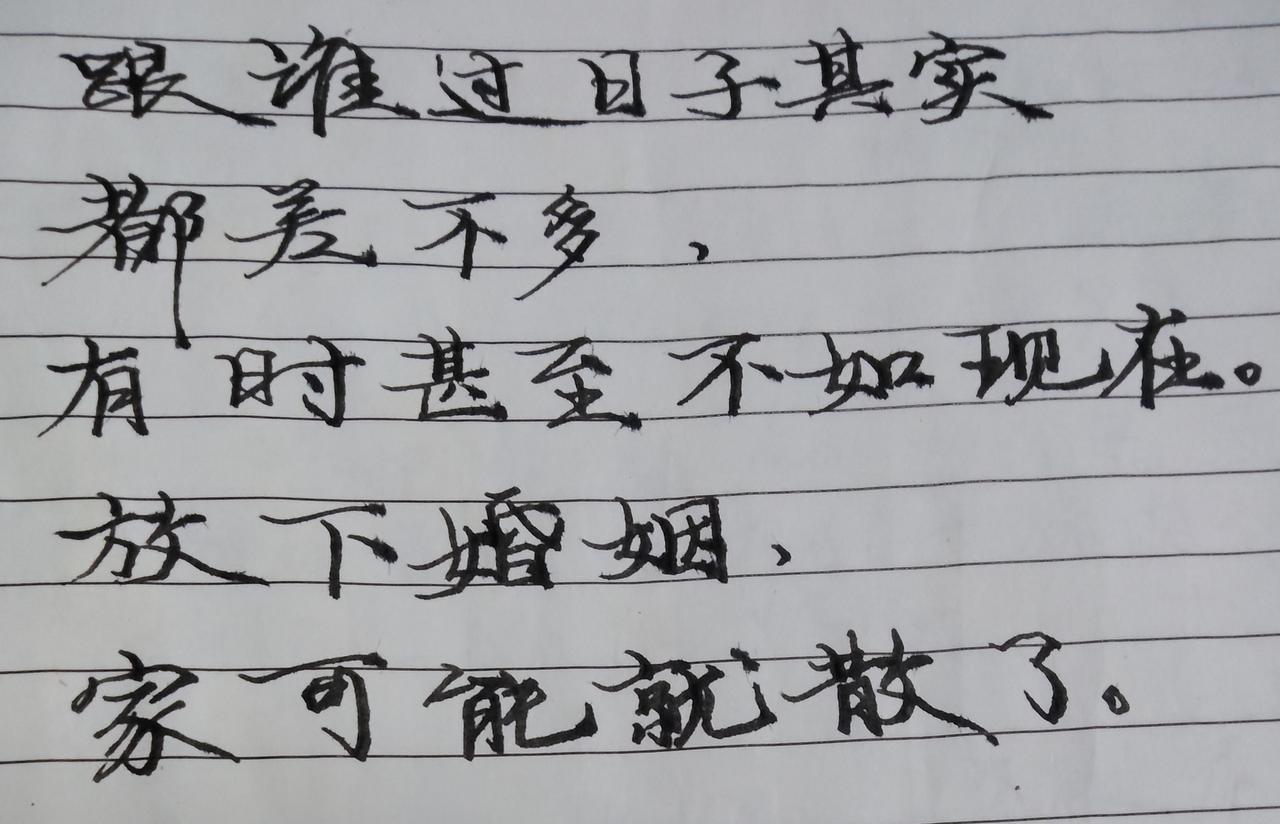 跟谁过日子其实
都差不多，
有时甚至不如现在。
放下婚姻，
家可能就散了。